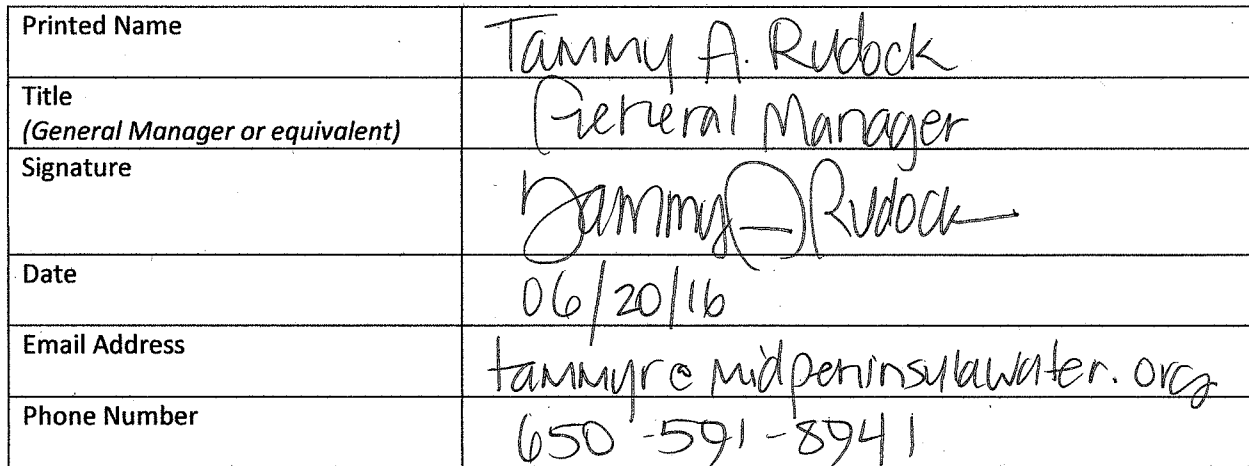 Printed Name Tammy A. Rudock
Title General Manager
(General Manager or equivalent)
Signature Tammy A Rudock
Date 06/20/16
Email Address tammyr@midpeninsulawater.org
Phone Number 650-591-8941